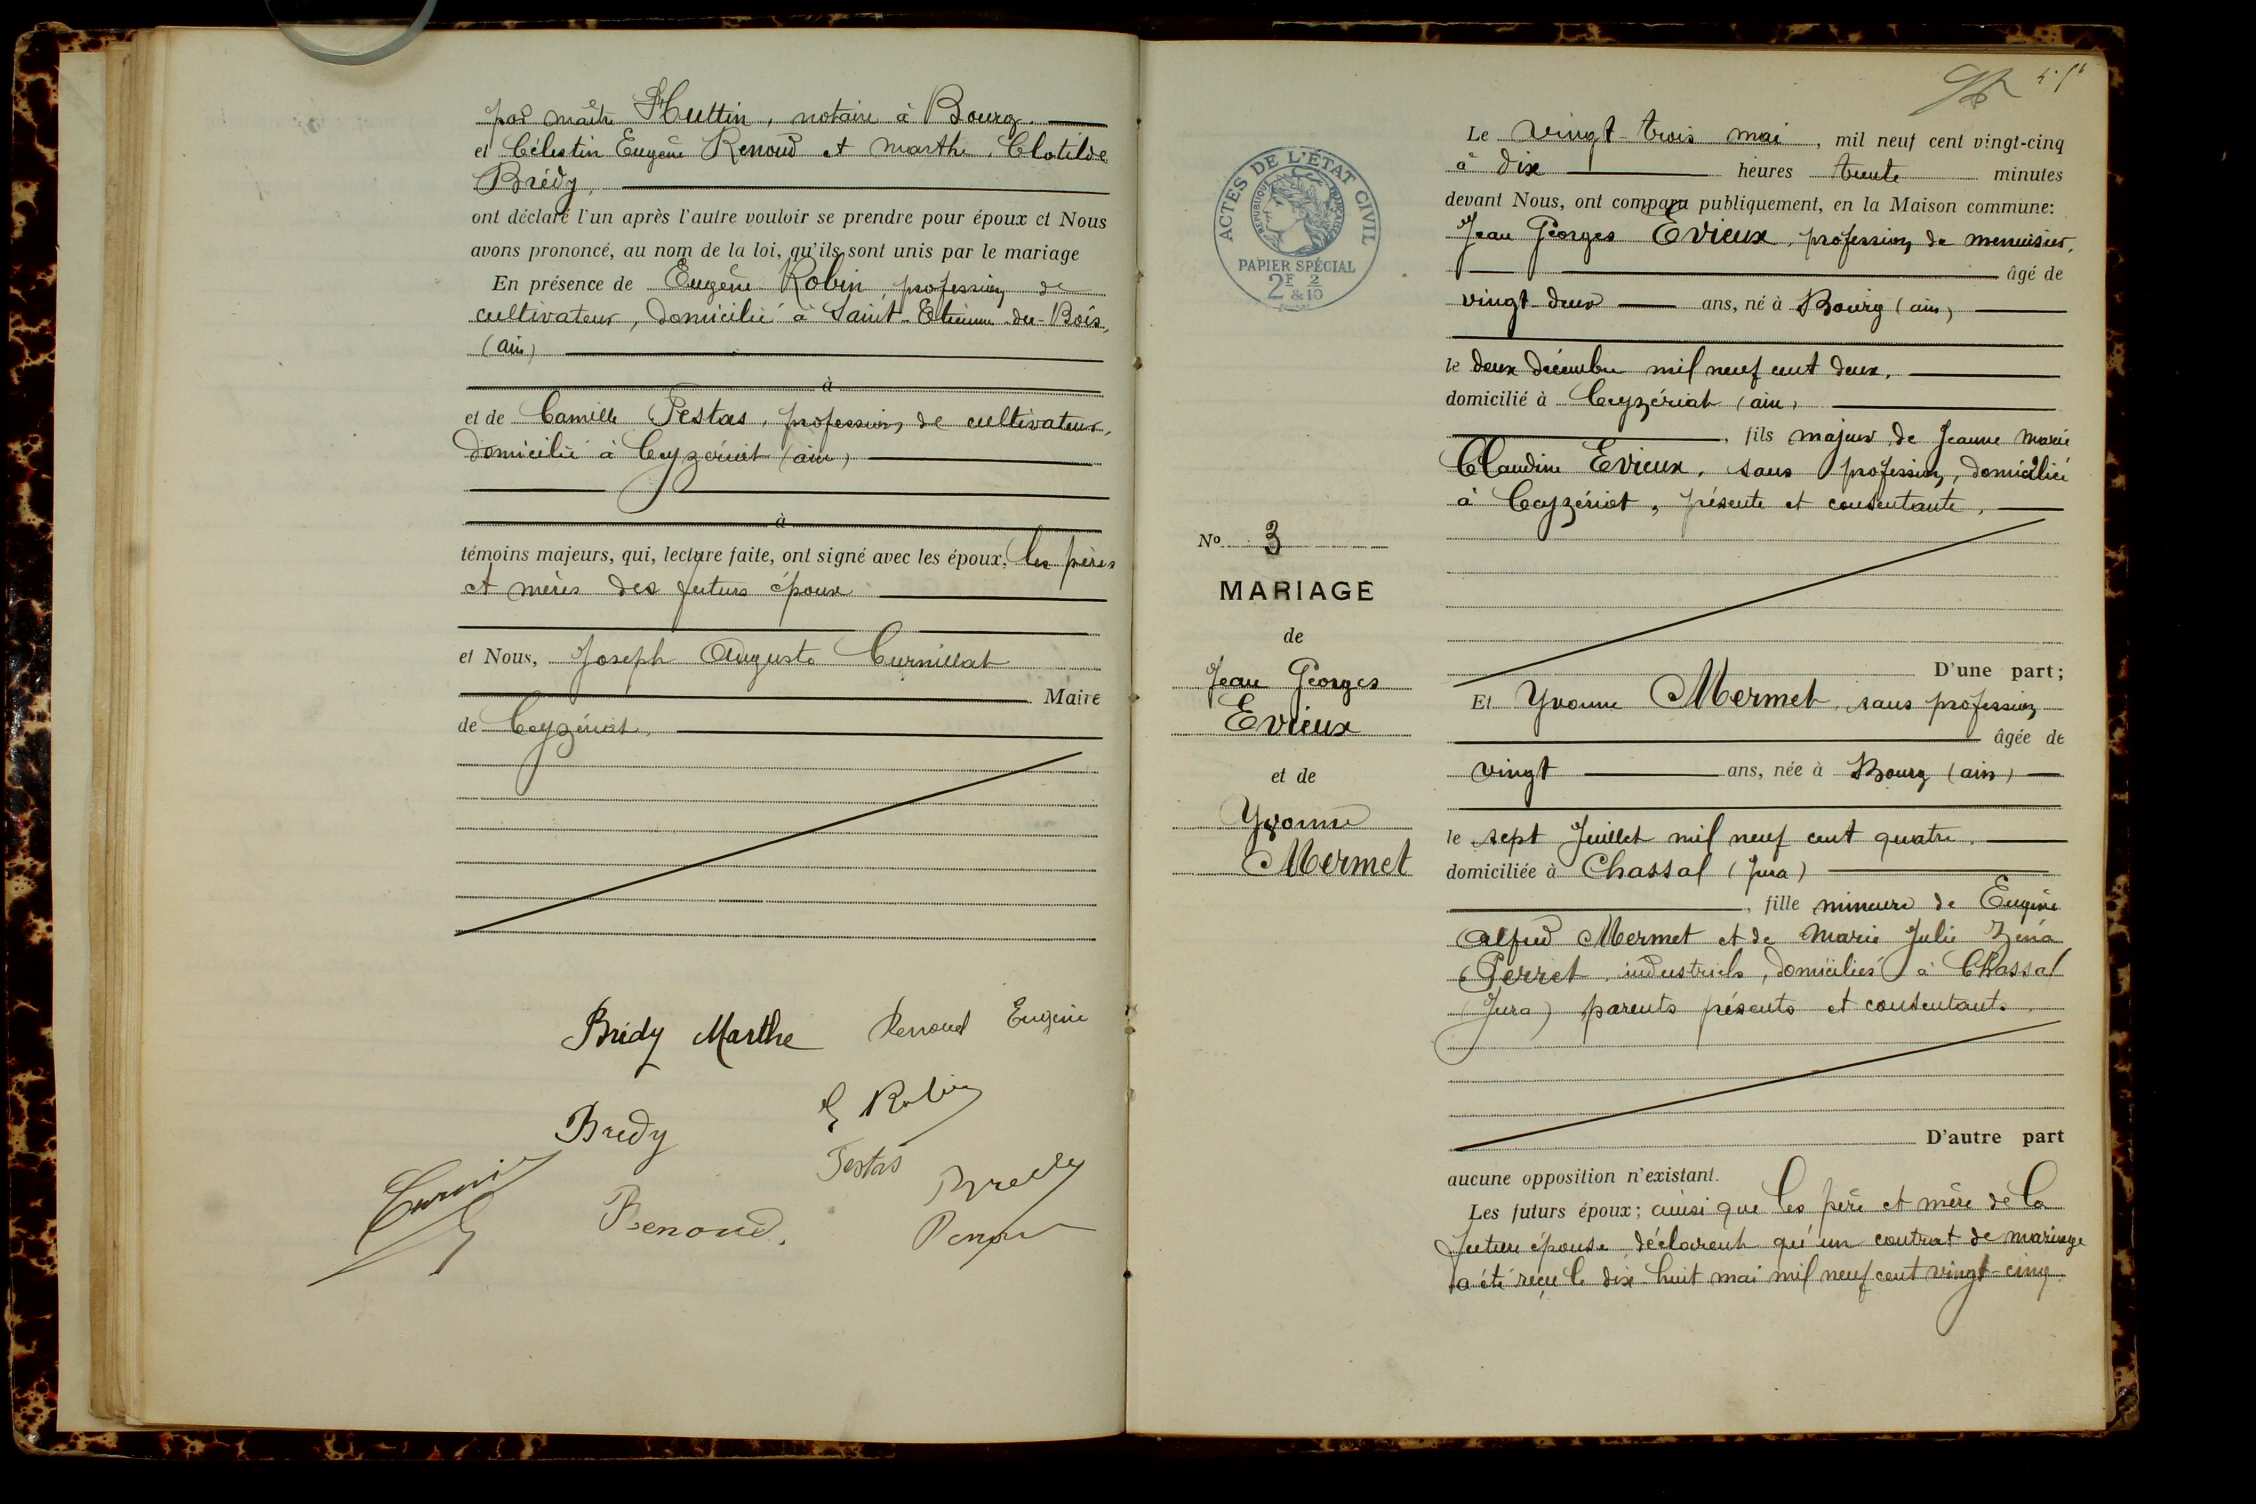 par maître Huttin, notaire à Bourg.
et Célestin Eugène Renoud et Marthe, Clotilde
Brédy,
ont déclaré l'un après l'autre vouloir se prendre pour époux et Nous
avons prononcé, au nom de la loi, qu'ils sont unis par le mariage
En présence de Eugène Robin, profession de
cultivateur, domicilié à Saint-Etienne-du-Bois,
(ain)
à
et de Camille Pestas, profession de cultivateur,
domicilié à Ceyzériat (ain)
à
témoins majeurs, qui, lecture faite, ont signé avec les époux, les pères
et mères des futurs époux
et Nous, Joseph Auguste Curnillat
Maire
de Ceyzériat,
Brédy Marthe Renoud Eugène
E Robin
Bredy
Testas
Bredy
Renoud.
ACTES DE L'ÉTAT CIVIL
RÉPUBLIQUE FRANÇAISE
PAPIER SPÉCIAL
2F & 2/10
No 3
MARIAGE
de
Jean Georges
Evieux
et de
Yvonne
Mermet
Le vingt-trois mai, mil neuf cent vingt-cinq
à dix heures trente minutes
devant Nous, ont comparu publiquement, en la Maison commune:
Jean Georges Evieux, profession de menuisier,
âgé de
vingt-deux ans, né à Bourg (ain)
le deux décembre mil neuf cent deux,
domicilié à Ceyzériat (ain)
, fils majeur de Jeanne Marie
Claudine Evieux, sans profession, domicilié
à Ceyzériat, présente et consentante,
D'une part;
Et Yvonne Mermet, sans profession
âgée de
vingt ans, née à Bourg (ain)
le sept Juillet mil neuf cent quatre
domiciliée à Chassal (Jura)
, fille mineure de Eugène
Alfred Mermet et de Marie Julie Zéna
Perret, industriels, domiciliés à Chassal
(Jura) parents présents et consentants.
D'autre part
aucune opposition n'existant.
Les futurs époux; ainsi que les père et mère de la
future épouse déclarent qu'un contrat de mariage
a été reçu le dix-huit mai mil neuf cent vingt-cinq